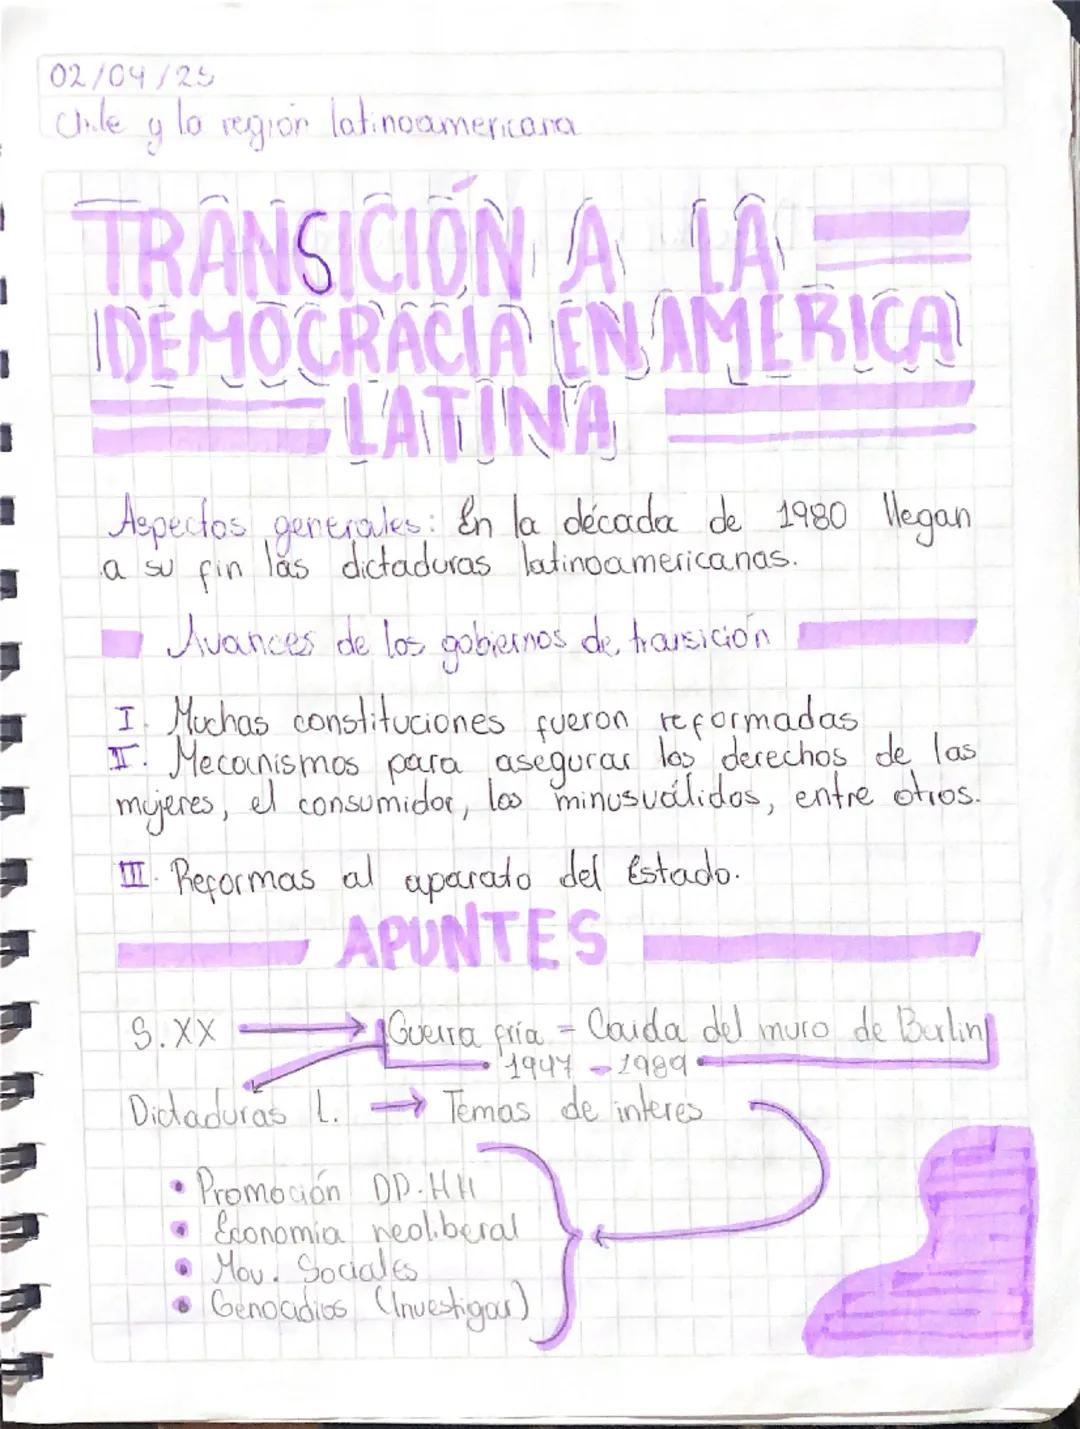 02/04/25
Chile y la región latinoamericana
TRANSICIÓN A LA
DEMOCRACIA EN AMERICA
LATINA
Aspectos generales: En la década de 1980 llegan
a su fin las dictaduras latinoamericanas.
Avances de los gobiernos de transición
I. Muchas constituciones fueron reformadas
II. Mecanismos para asegurar los derechos de las
mujeres, el consumidor, los minusválidos, entre otros.
III. Reformas al aparato del Estado.
APUNTES
S.XX → Guerra fría = Caida del muro de Berlin
1947 - 1989
Dictaduras L. → Temas de interes
• Promoción DD.HH
• Economía neoliberal
• Mov. Sociales
• Genocidios (Investigar)